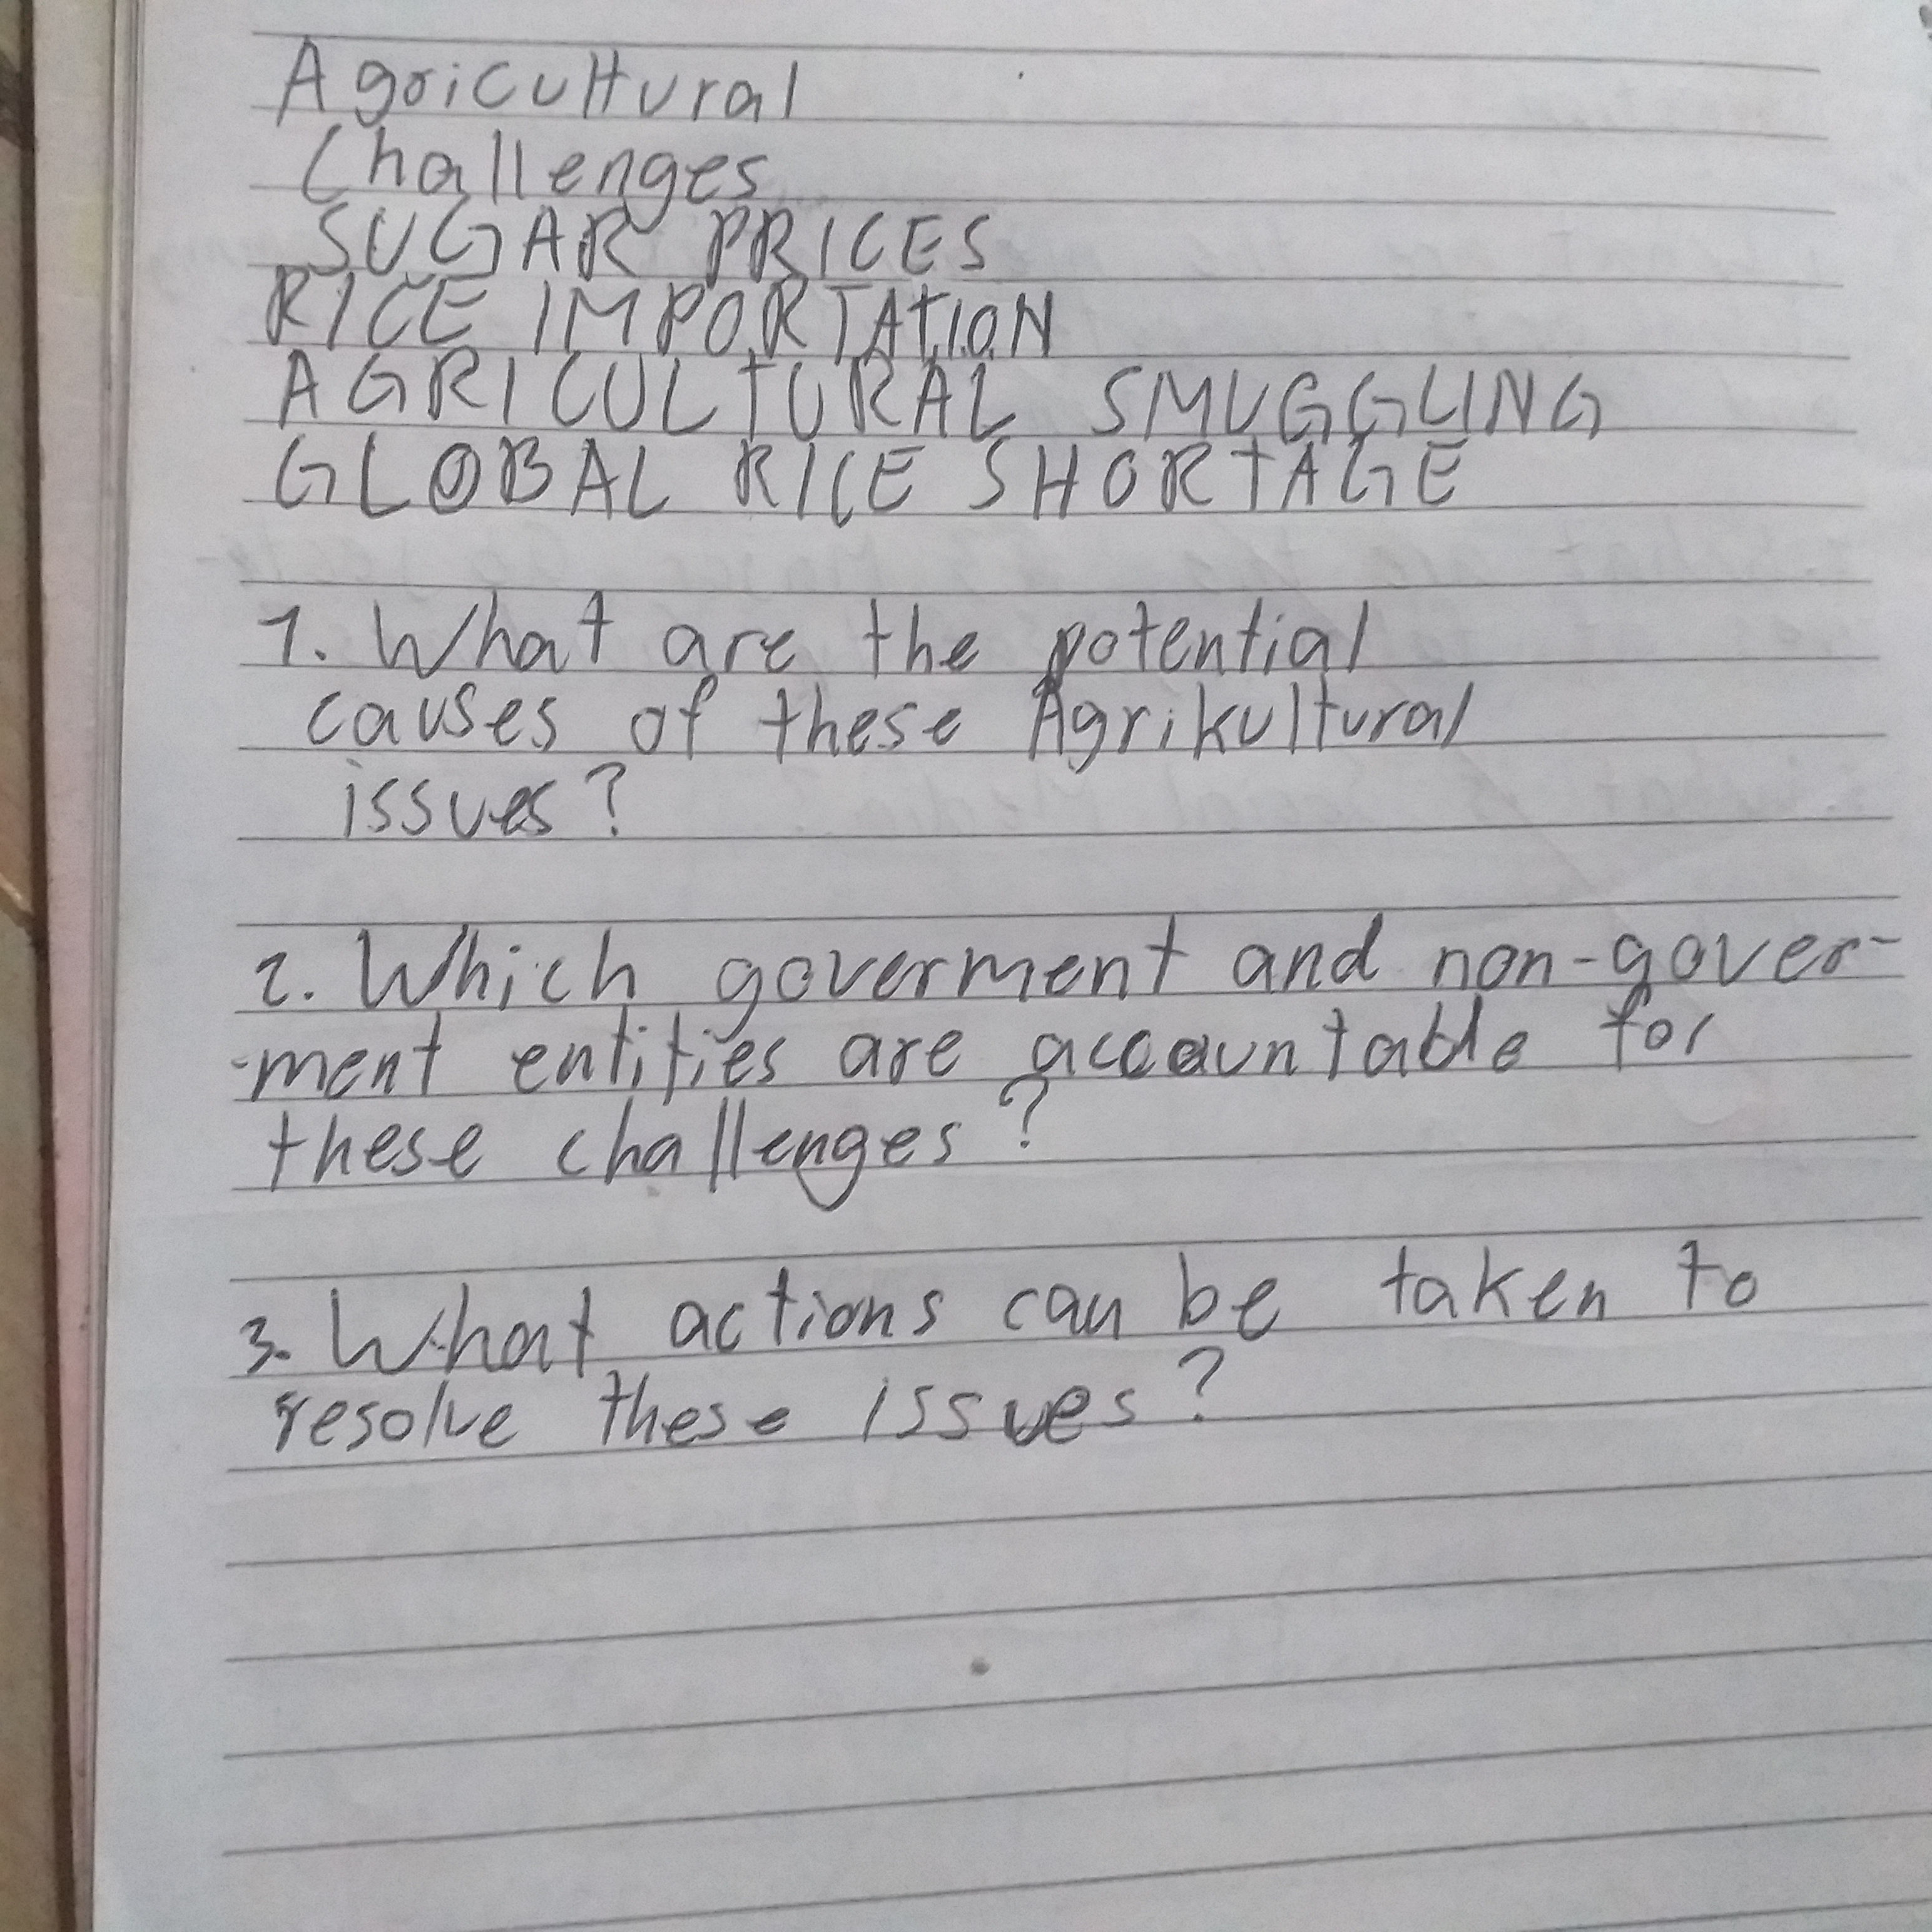 Agricultural
Challenges
SUGAR PRICES
RICE IMPORTATION
AGRICULTURAL SMUGGLING
GLOBAL RICE SHORTAGE
1. What are the potential
causes of these Agrikultural
issues?
2. Which goverment and non-gover-
-ment entities are accountable for
these challenges?
3. What actions can be taken to
resolve these issues?